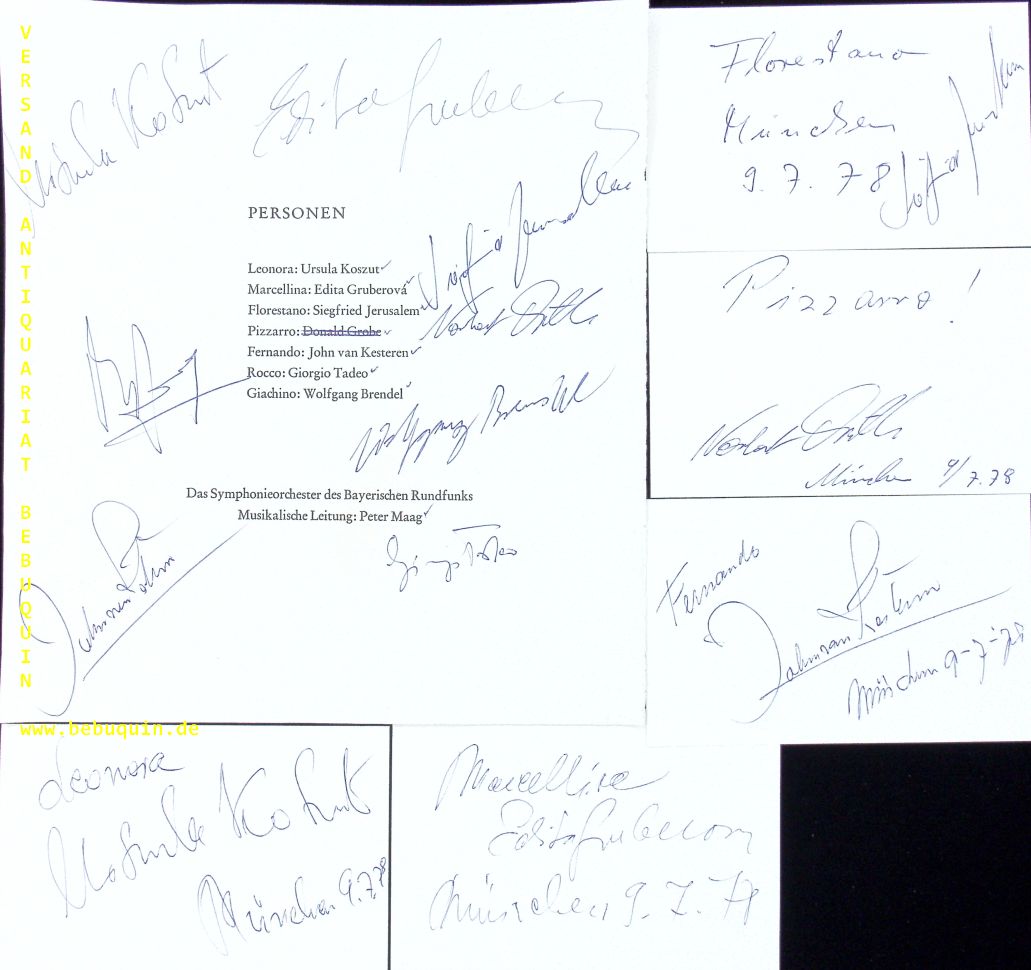 VERSAND ANTIQUARIAT BEBUQUIN
www.bebuquin.de
Ursula Koszut
Edita Gruberova
PERSONEN
Leonora: Ursula Koszut
Marcellina: Edita Gruberová
Florestano: Siegfried Jerusalem
Pizzarro: Donald Grobe
Fernando: John van Kesteren
Rocco: Giorgio Tadeo
Giachino: Wolfgang Brendel
Siegfried Jerusalem
Norbert Orth
Wolfgang Brendel
Das Symphonieorchester des Bayerischen Rundfunks
Musikalische Leitung: Peter Maag
Giorgio Tadeo
John van Kesteren
Florestano
München
9. 7. 78
Siegfried Jerusalem
Pizzarro!
Norbert Orth
München 9/7.78
Fernando
John van Kesteren
München 9-7-78
Leonora
Ursula Koszut
München 9.7.78
Marcellina
Edita Gruberova
München 9.7.78